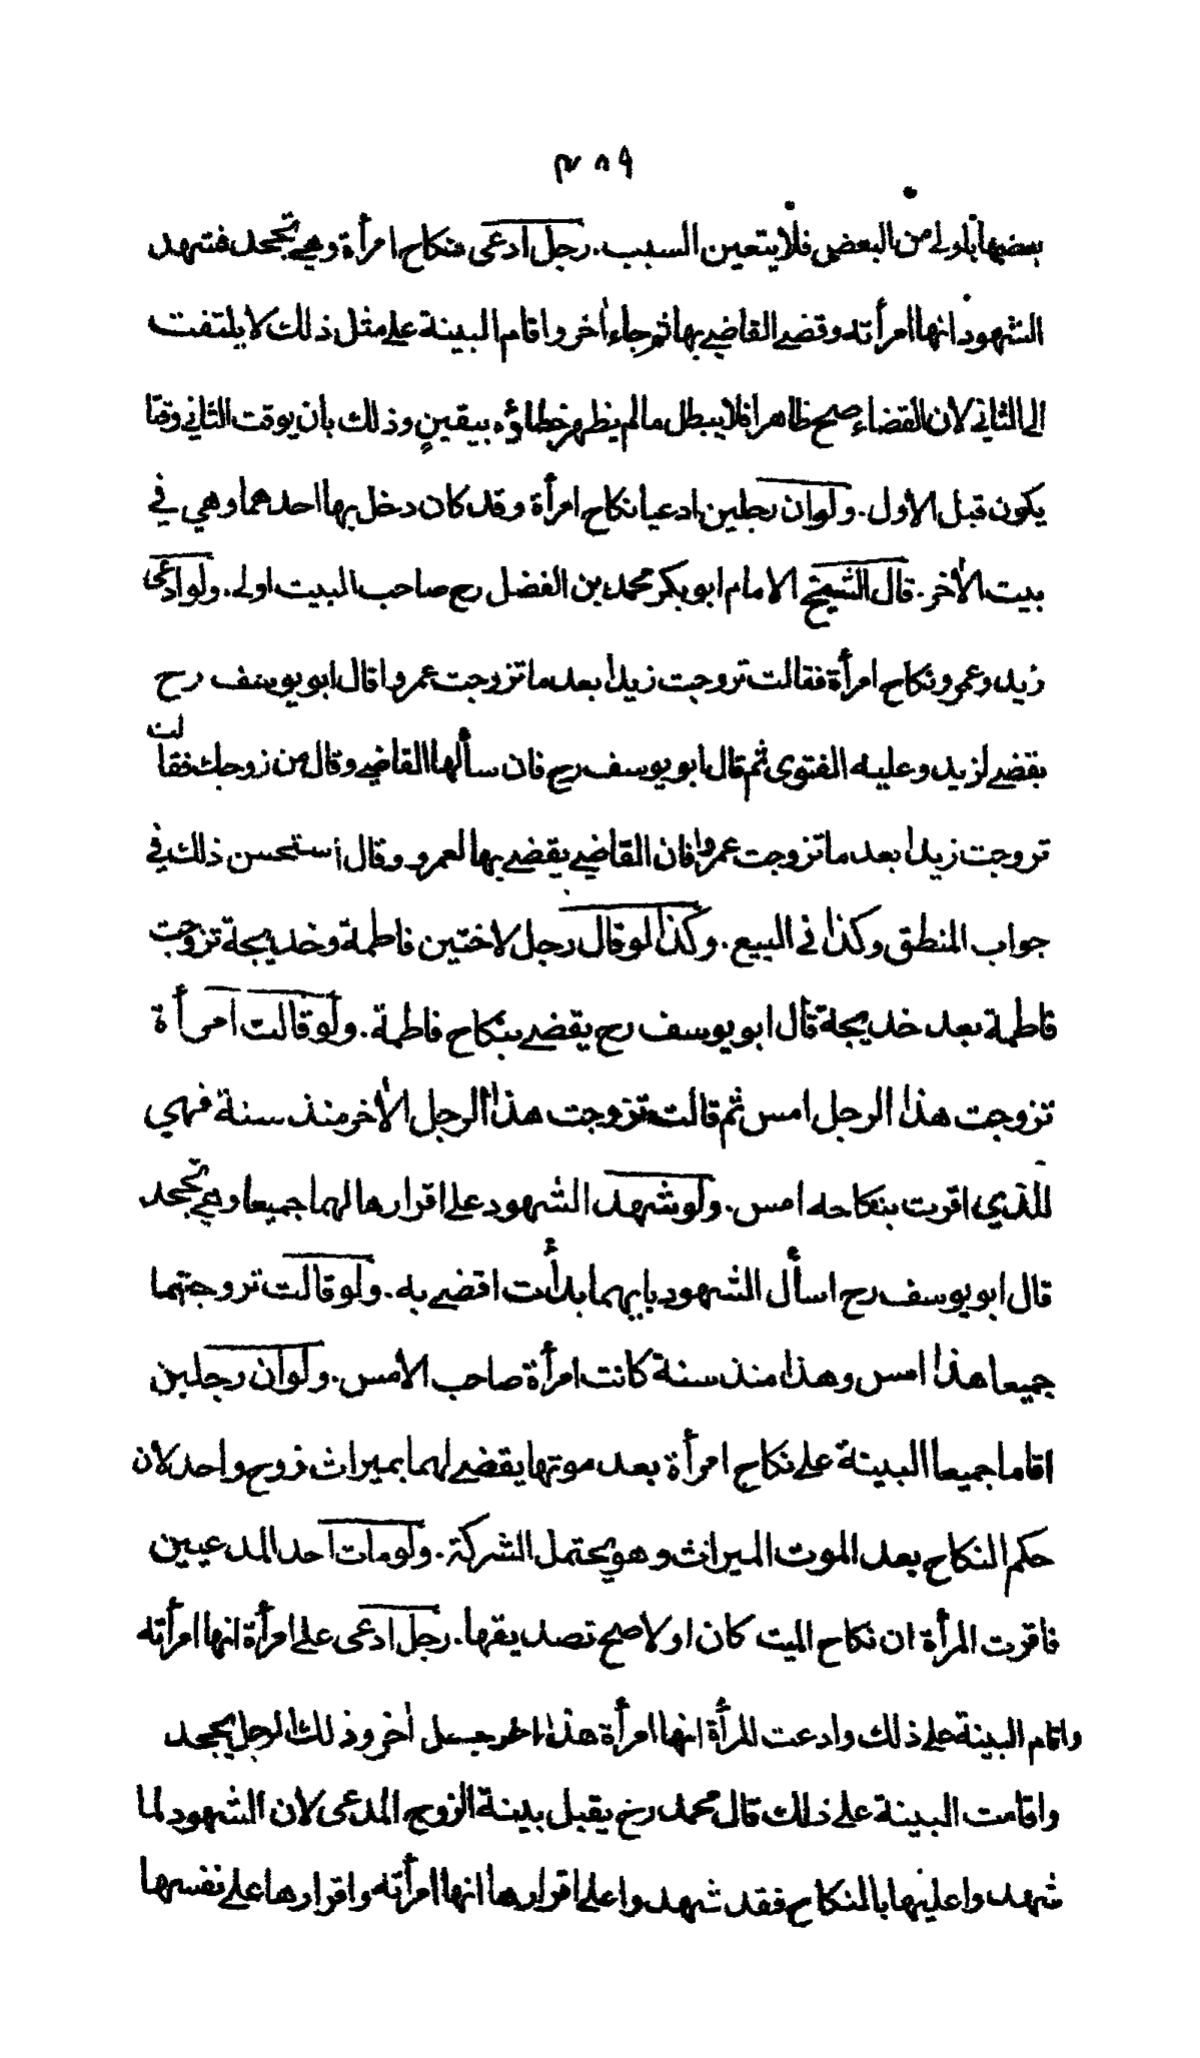 ٣٨٩
بعضها باولى من البعض فلا يتعين السبب. رجل ادعى نكاح امرأة وهي تجحد فشهد
الشهود انها امرأته وقضى القاضي بها ثم جاء اٰخر واقام البينة على مثل ذلك لا يلتفت
الى الثاني لان القضاء صحح ظاهرا فلا يبطل مالم يظهر خطاؤه بيقينٍ وذلك بان يوقت الثاني وقتا
يكون قبل الاول. ولو ان رجلين ادعيا نكاح امرأة وقد كان دخل بها احدهما وهي في
بيت الاٰخر. قال الشيخ الامام ابو بكر محمد بن الفضل رح صاحب البيت اولى. ولو ادعى
زيد وعمرو نكاح امرأة فقالت تزوجت زيدا بعد ما تزوجت عمروا قال ابو يوسف رح
يقضي لزيد وعليه الفتوى ثم قال ابو يوسف رح فان سألها القاضي وقال من زوجك فقالت
تزوجت زيدا بعد ما تزوجت عمروا فان القاضي يقضي بها لعمرو وقال أستحسن ذلك في
جواب المنطق وكذا في البيع. وكذا لو قال رجل لاختين فاطمة وخديجة تزوجت
فاطمة بعد خديجة قال ابو يوسف رح يقضي بنكاح فاطمة. ولو قالت امرأة
تزوجت هذا الرجل امس ثم قالت تزوجت هذا الرجل الاٰخر منذ سنة فهي
للذي اقرت بنكاحه امس. ولو شهد الشهود على اقرارها لهما جميعا وهي تجحد
قال ابو يوسف رح اسأل الشهود بايهما بدأت اقضي به. ولو قالت تزوجتهما
جميعا هذا امس وهذا منذ سنة كانت امرأة صاحب الامس. ولو ان رجلين
اقاما جميعا البينة على نكاح امرأة بعد موتها يقضى لهما بميراث زوج واحد لان
حكم النكاح بعد الموت الميراث وهو يحتمل الشركة. ولو مات احد المدعيين
فاقرت المرأة ان نكاح الميت كان اولا صح تصديقها. رجل ادعى على امرأة انها امرأته
واقام البينة على ذلك وادعت المرأة انها امرأة هذا لرجل اٰخر وذلك الرجل يجحد
واقامت البينة على ذلك قال محمد رح يقبل بينة الزوج المدعى لان الشهود لما
شهدوا عليها بالنكاح فقد شهدوا على اقرارها انها امرأته واقرارها على نفسها